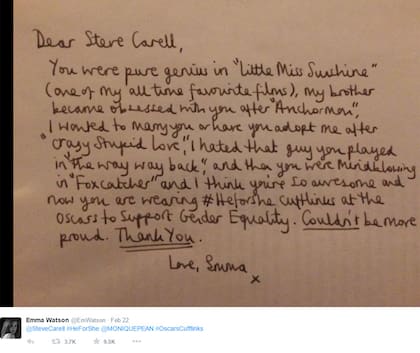 Dear Steve Carell,
You were pure genius in "Little Miss Sunshine"
(one of my all time favourite films), my brother
became obsessed with you after "Anchorman",
I wanted to marry you or have you adopt me after
"Crazy Stupid Love", I hated that guy you played
in "The way way back", and then you were Mindblowing
in "Foxcatcher" and I think you're so awesome and
now you are wearing #Heforshe cufflinks at the
Oscars to Support Gender Equality. Couldn't be more
proud. Thank You.
Love, Emma
x
Emma Watson @EmWatson · Feb 22
@SteveCarell #HeForShe @MONIQUEPEAN #OscarsCufflinks
3.7K 9.5K